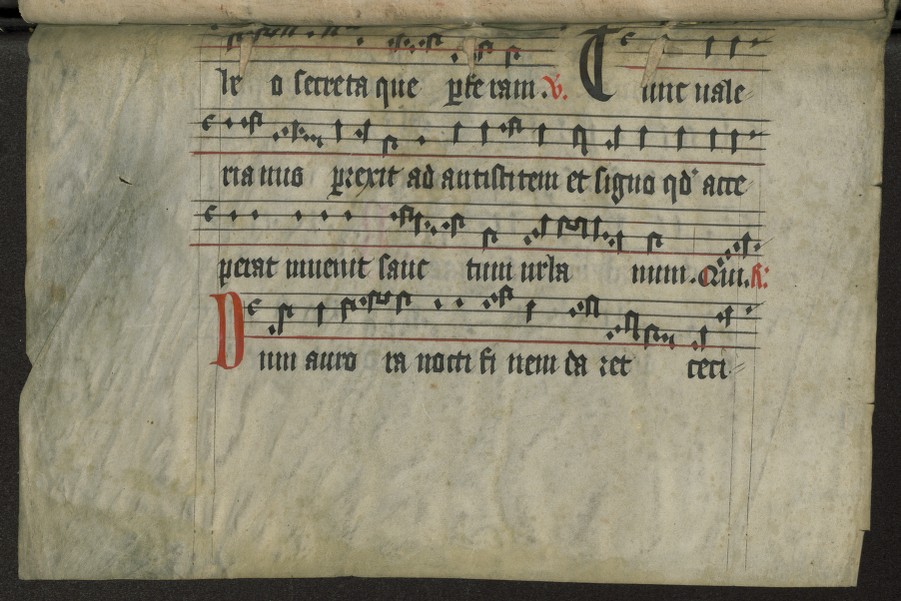 le o secreta que pferam. v. Tunc uale
rianus perrexit ad antistitem et signo qd' acce
perat inuenit sanc tum urba num. Qui. R:
Dum auro ra nocti fi nem da ret ceci